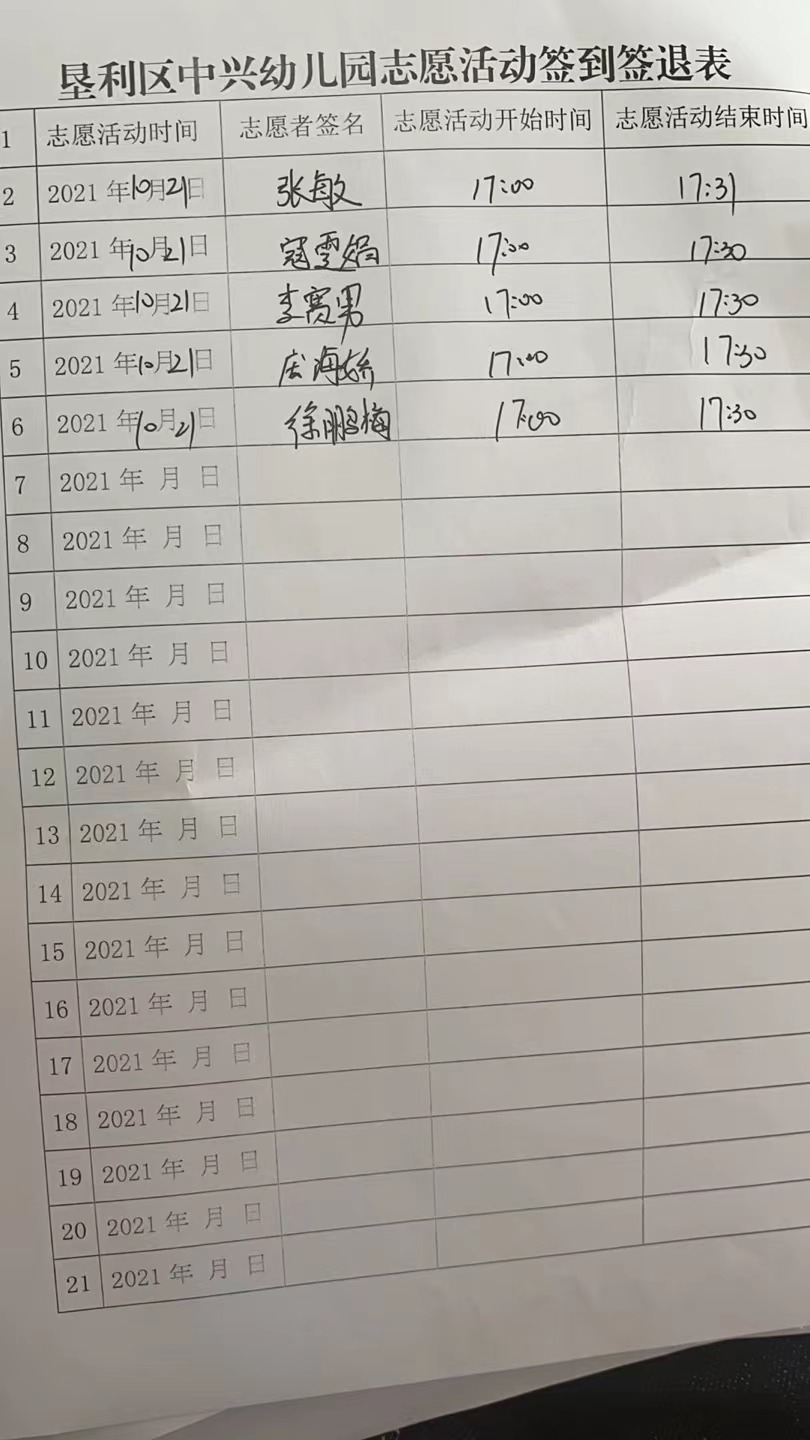 垦利区中兴幼儿园志愿活动签到签退表
1 志愿活动时间 志愿者签名 志愿活动开始时间 志愿活动结束时间
2 2021年10月21日 张敏 17:00 17:31
3 2021年10月21日 寇雪娟 17:00 17:30
4 2021年10月21日 李赛男 17:00 17:30
5 2021年10月21日 17:00 17:30
6 2021年10月21日 徐鹏梅 17:00 17:30
7 2021年 月 日
8 2021年 月 日
9 2021年 月 日
10 2021年 月 日
11 2021年 月 日
12 2021年 月 日
13 2021年 月 日
14 2021年 月 日
15 2021年 月 日
16 2021年 月 日
17 2021年 月 日
18 2021年 月 日
19 2021年 月 日
20 2021年 月 日
21 2021年 月 日